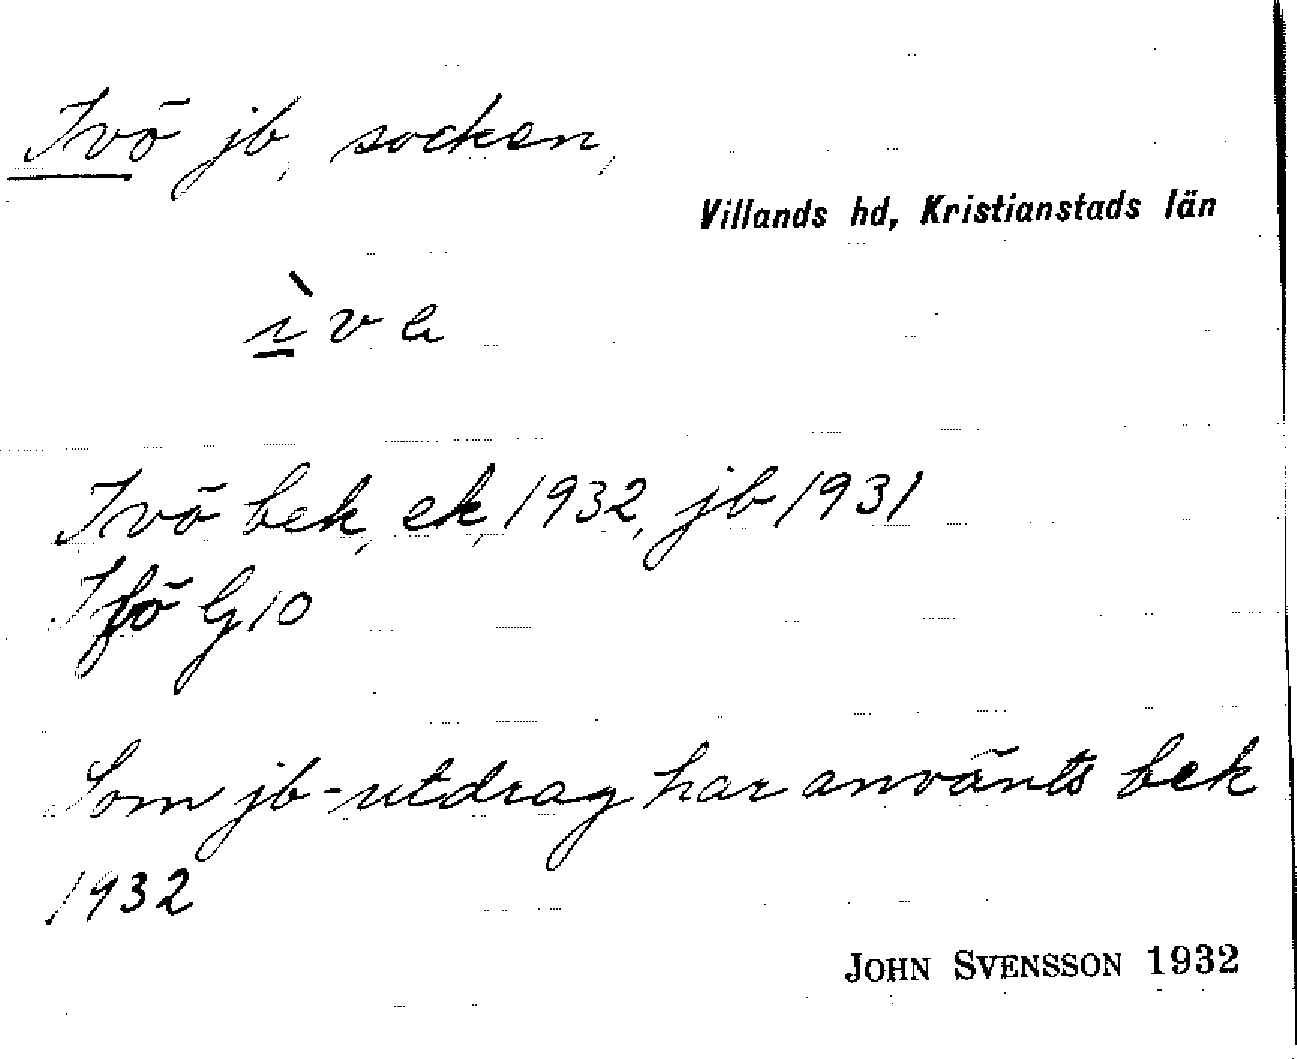 Ivö jb, socken,
Villands hd, Kristianstads län
Ivö bek, ek, 1932, jb 1931
Ifö G10
Som jb-utdrag har använts bek
1932
JOHN SVENSSON 1932